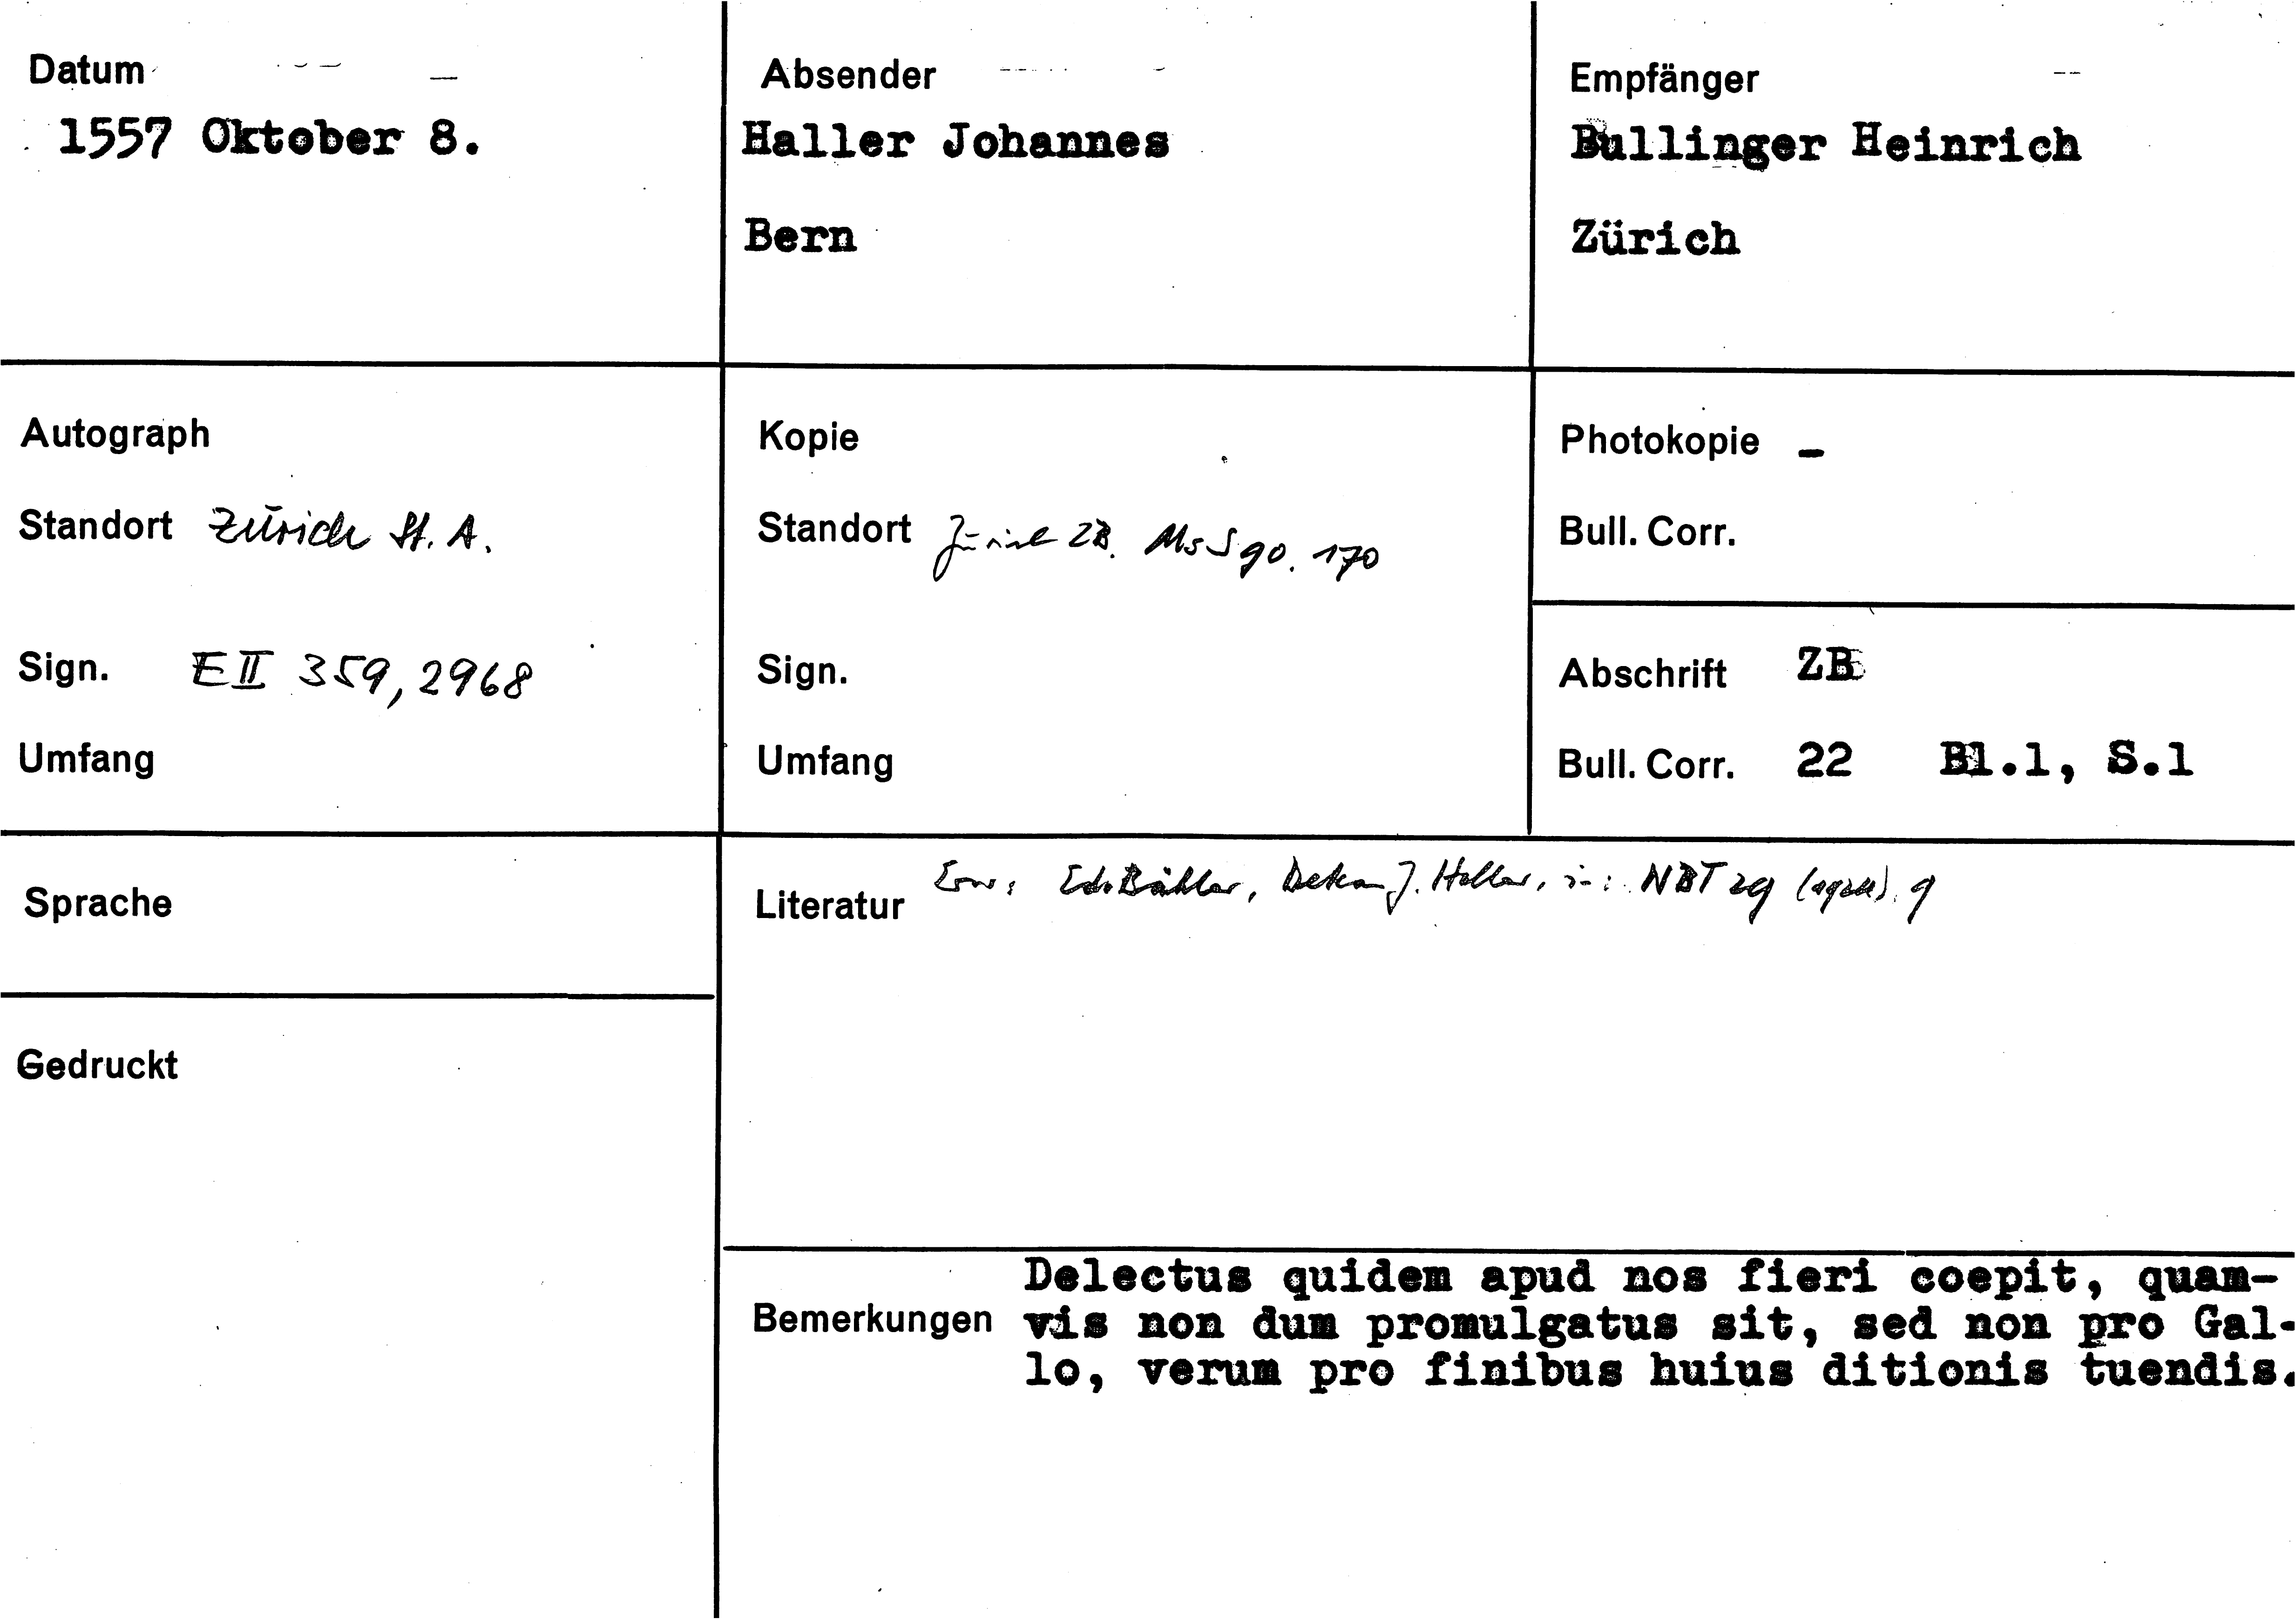 Datum
1557 Oktober 8.
Absender
Haller Johannes
Bern
Empfänger
Bullinger Heinrich
Zürich
Autograph
Standort Zürich St. A.
Sign. E II 359, 2968
Umfang
Kopie
Standort Zürich ZB. Ms S 90. 170
Sign.
Umfang
Photokopie –
Bull. Corr.
Abschrift ZB
Bull. Corr. 22 Bl.1, S.1
Sprache
Gedruckt
Literatur Erw: Ed. Bähler, Dekan J. Haller, in: NBT 29 9
Bemerkungen
Delectus quidem apud nos fieri coepit, quam-
vis non dum promulgatus sit, sed non pro Gal-
lo, verum pro finibus huius ditionis tuendis.